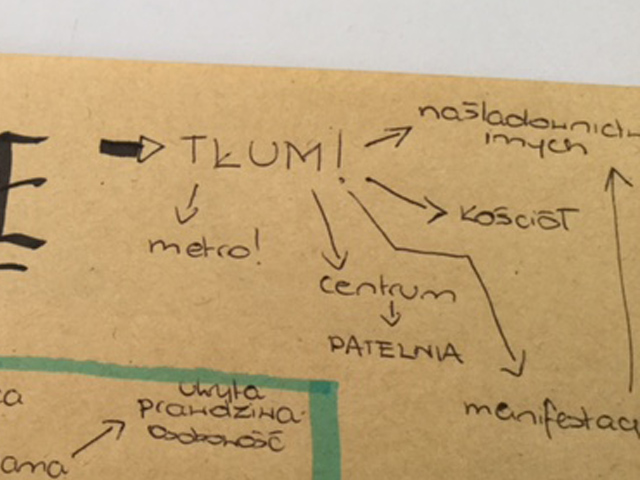 E
TŁUM!
naśladownictw
innych
metro!
KOŚCIÓŁ
centrum
PATELNIA
manifestac
ukryta
prawdziwa
osobowość
ama